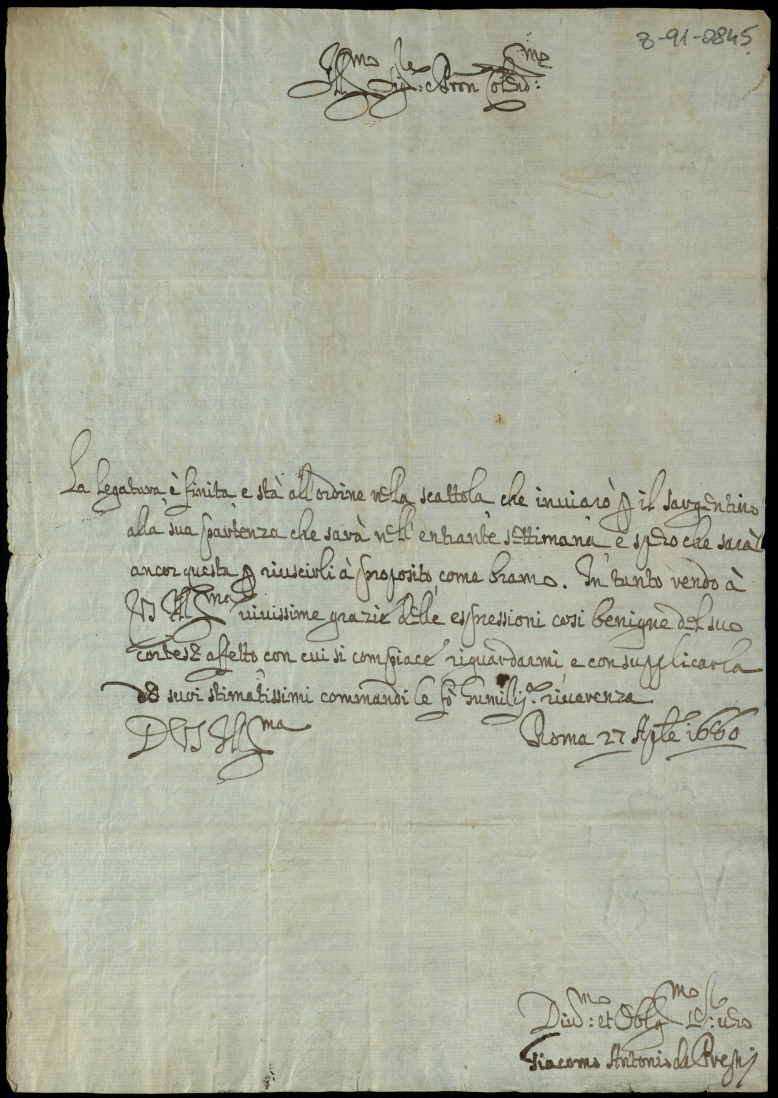 8-91-0845
Ill.mo Sig.re e Pron Colend.mo:
La legatura è finita e stà all'ordine nella scattola che inviarò p il sargentino
alla sua partenza che sarà nell'entrante settimana e spero che sarà
ancor questa p riuscirli à proposito come bramo. In tanto rendo à
VS Ill.ma vivissime grazie delle espressioni cosi benigne del suo
cortese affetto con cui si compiace riguardarmi e con supplicarla
de suoi stimatissimi commandi le fò humiliss.ma riverenza
D VS Ill.ma
Roma 27 Aple 1660
Div.mo: et Oblig.mo Se.: vero
Giacomo Antonio de